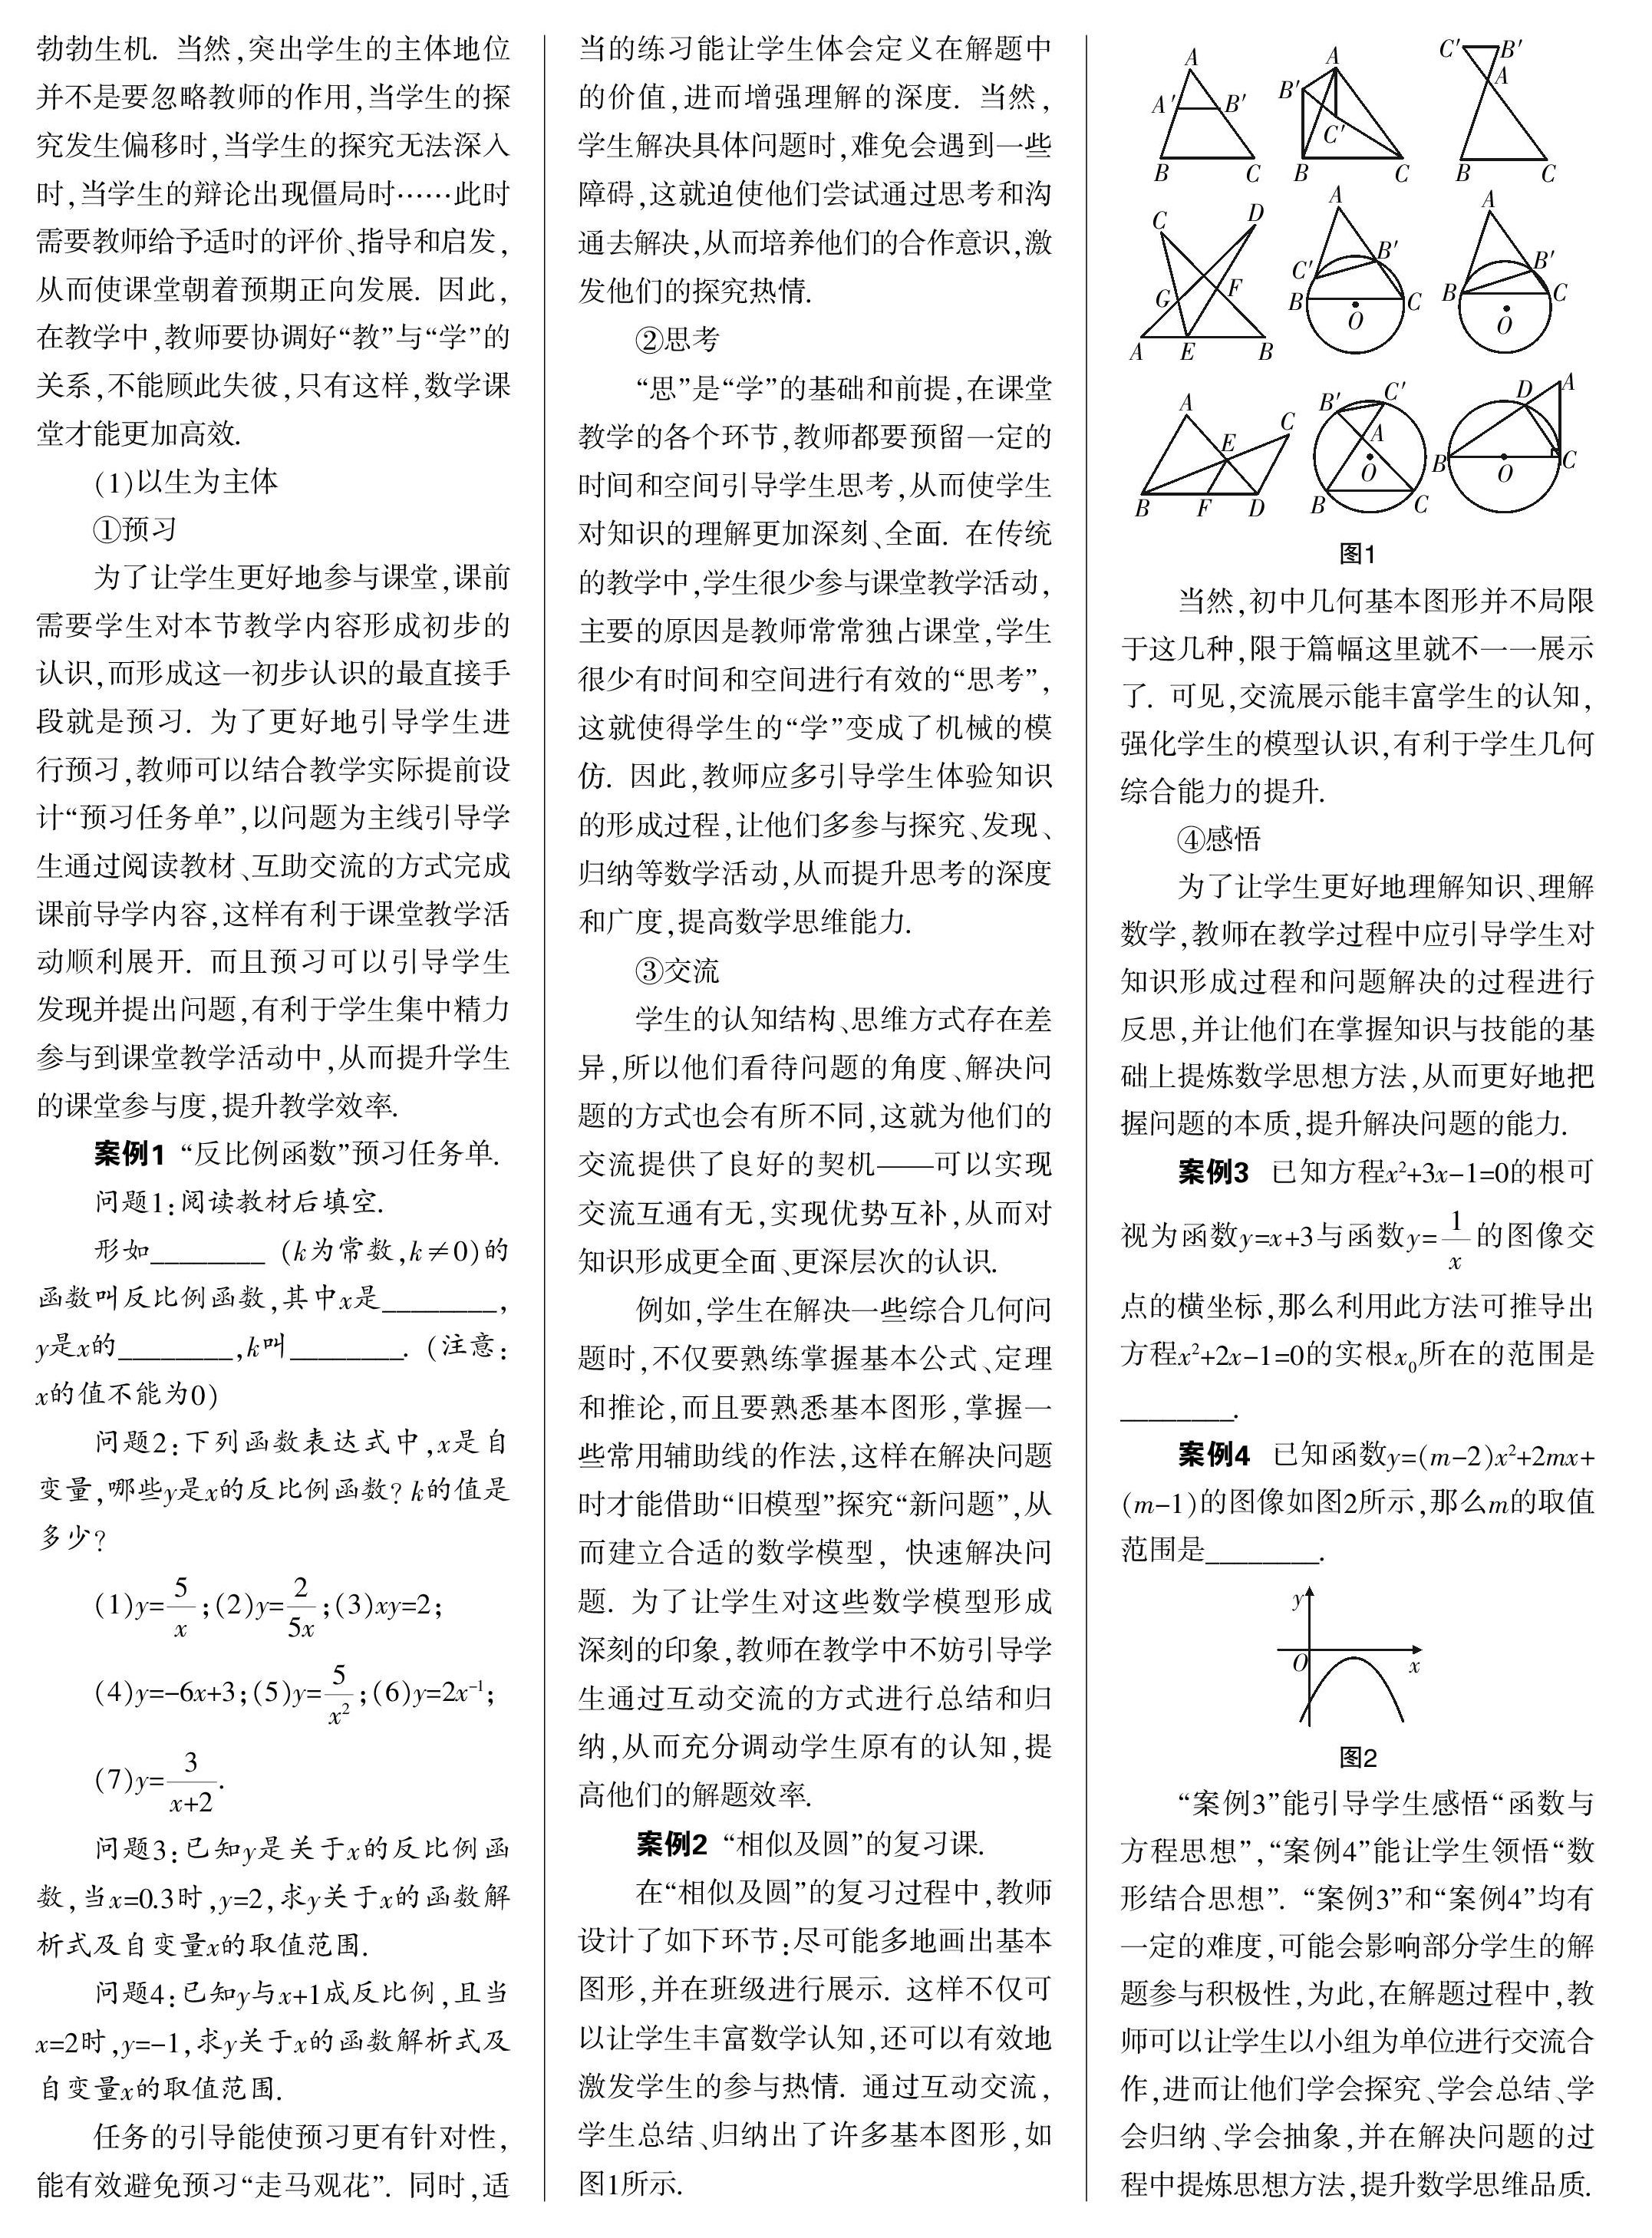 勃勃生机. 当然,突出学生的主体地位
并不是要忽略教师的作用,当学生的探
究发生偏移时,当学生的探究无法深入
时,当学生的辩论出现僵局时……此时
需要教师给予适时的评价、指导和启发,
从而使课堂朝着预期正向发展. 因此,
在教学中,教师要协调好“教”与“学”的
关系,不能顾此失彼,只有这样,数学课
堂才能更加高效.
(1)以生为主体
①预习
为了让学生更好地参与课堂,课前
需要学生对本节教学内容形成初步的
认识,而形成这一初步认识的最直接手
段就是预习. 为了更好地引导学生进
行预习,教师可以结合教学实际提前设
计“预习任务单”,以问题为主线引导学
生通过阅读教材、互助交流的方式完成
课前导学内容,这样有利于课堂教学活
动顺利展开. 而且预习可以引导学生
发现并提出问题,有利于学生集中精力
参与到课堂教学活动中,从而提升学生
的课堂参与度,提升教学效率.
案例1 “反比例函数”预习任务单.
问题1:阅读教材后填空.
形如________ (k为常数,k≠0)的
函数叫反比例函数,其中x是________,
y是x的________,k叫________. (注意:
x的值不能为0)
问题2:下列函数表达式中,x是自
变量,哪些y是x的反比例函数? k的值是
多少?
(1)y=5/x;(2)y=2/5x;(3)xy=2;
(4)y=-6x+3;(5)y=5/x²;(6)y=2x⁻¹;
(7)y=3/x+2.
问题3:已知y是关于x的反比例函
数,当x=0.3时,y=2,求y关于x的函数解
析式及自变量x的取值范围.
问题4:已知y与x+1成反比例,且当
x=2时,y=-1,求y关于x的函数解析式及
自变量x的取值范围.
任务的引导能使预习更有针对性,
能有效避免预习“走马观花”. 同时,适
当的练习能让学生体会定义在解题中
的价值,进而增强理解的深度. 当然,
学生解决具体问题时,难免会遇到一些
障碍,这就迫使他们尝试通过思考和沟
通去解决,从而培养他们的合作意识,激
发他们的探究热情.
②思考
“思”是“学”的基础和前提,在课堂
教学的各个环节,教师都要预留一定的
时间和空间引导学生思考,从而使学生
对知识的理解更加深刻、全面. 在传统
的教学中,学生很少参与课堂教学活动,
主要的原因是教师常常独占课堂,学生
很少有时间和空间进行有效的“思考”,
这就使得学生的“学”变成了机械的模
仿. 因此,教师应多引导学生体验知识
的形成过程,让他们多参与探究、发现、
归纳等数学活动,从而提升思考的深度
和广度,提高数学思维能力.
③交流
学生的认知结构、思维方式存在差
异,所以他们看待问题的角度、解决问
题的方式也会有所不同,这就为他们的
交流提供了良好的契机——可以实现
交流互通有无,实现优势互补,从而对
知识形成更全面、更深层次的认识.
例如,学生在解决一些综合几何问
题时,不仅要熟练掌握基本公式、定理
和推论,而且要熟悉基本图形,掌握一
些常用辅助线的作法,这样在解决问题
时才能借助“旧模型”探究“新问题”,从
而建立合适的数学模型, 快速解决问
题. 为了让学生对这些数学模型形成
深刻的印象,教师在教学中不妨引导学
生通过互动交流的方式进行总结和归
纳,从而充分调动学生原有的认知,提
高他们的解题效率.
案例2 “相似及圆”的复习课.
在“相似及圆”的复习过程中,教师
设计了如下环节:尽可能多地画出基本
图形,并在班级进行展示. 这样不仅可
以让学生丰富数学认知,还可以有效地
激发学生的参与热情. 通过互动交流,
学生总结、归纳出了许多基本图形,如
图1所示.
A A′ B′ B C
A B′ C′ B C
C′ B′ A B C
C D G F A E B
A C′ B′ B C O
A B′ B C O
A C E B F D
B′ C′ A O B C
D A B O C
图1
当然,初中几何基本图形并不局限
于这几种,限于篇幅这里就不一一展示
了. 可见,交流展示能丰富学生的认知,
强化学生的模型认识,有利于学生几何
综合能力的提升.
④感悟
为了让学生更好地理解知识、理解
数学,教师在教学过程中应引导学生对
知识形成过程和问题解决的过程进行
反思,并让他们在掌握知识与技能的基
础上提炼数学思想方法,从而更好地把
握问题的本质,提升解决问题的能力.
案例3 已知方程x²+3x-1=0的根可
视为函数y=x+3与函数y=1/x的图像交
点的横坐标,那么利用此方法可推导出
方程x²+2x-1=0的实根x₀所在的范围是
________.
案例4 已知函数y=(m-2)x²+2mx+
(m-1)的图像如图2所示,那么m的取值
范围是________.
y
O x
图2
“案例3”能引导学生感悟“函数与
方程思想”,“案例4”能让学生领悟“数
形结合思想”. “案例3”和“案例4”均有
一定的难度,可能会影响部分学生的解
题参与积极性,为此,在解题过程中,教
师可以让学生以小组为单位进行交流合
作,进而让他们学会探究、学会总结、学
会归纳、学会抽象,并在解决问题的过
程中提炼思想方法,提升数学思维品质.